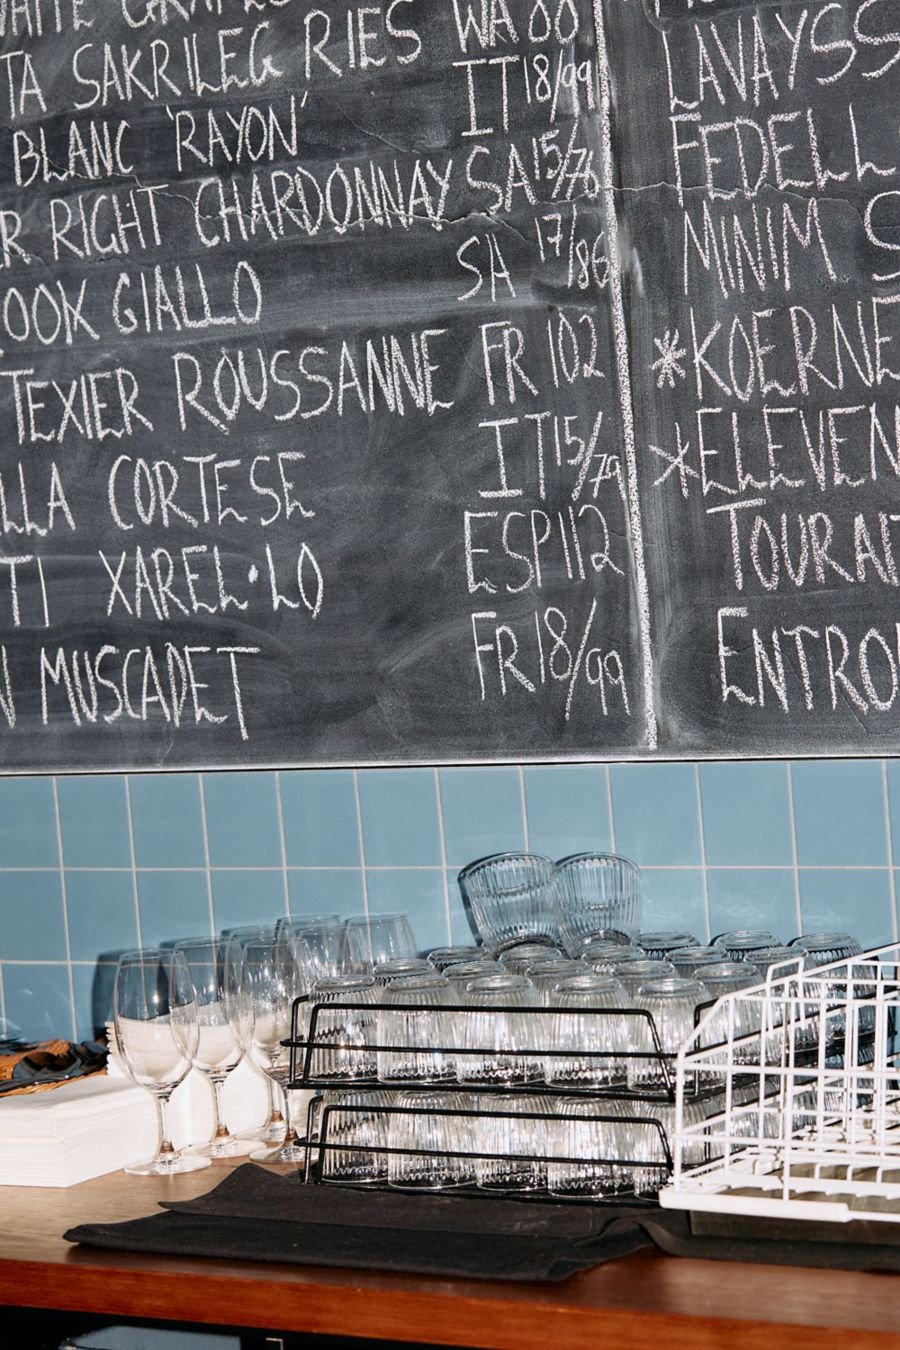 WHITE GRAPES WA 88
TA SAKRILEG RIES IT 18/99
BLANC 'RAYON' SA 15/76
R RIGHT CHARDONNAY SA 17/86
OOK GIALLO
TEXIER ROUSSANNE FR 102
LLA CORTESE IT 15/79
TI XAREL·LO ESP 112
N MUSCADET FR 18/99
LAVAYSS
FEDELL
MINIM S
*KOERNE
*ELEVEN
TOURA
ENTRO